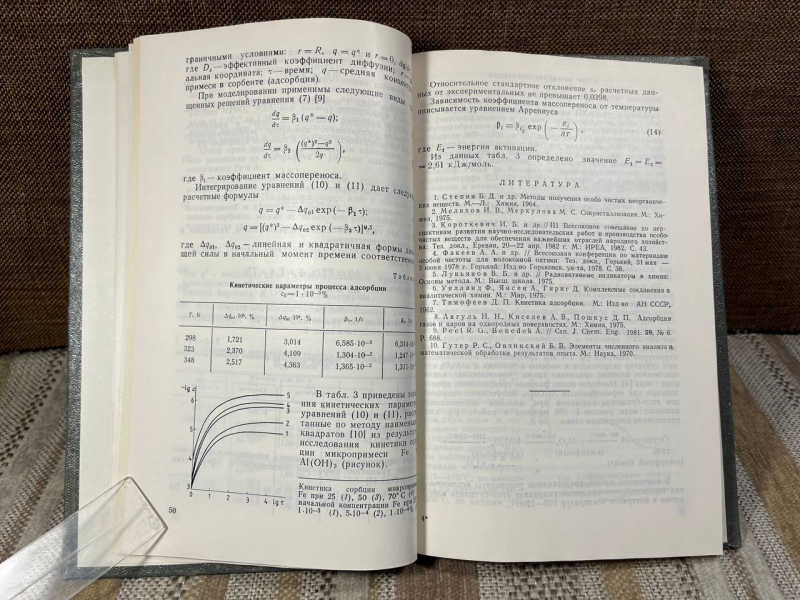 граничными условиями: r = R, q = q* и r = 0,
где D₂ — эффективный коэффициент диффузии; r —
альная координата; τ — время; q — средняя
примеси в сорбенте (адсорбция).
При моделировании применимы следующие виды
щенных решений уравнения (7) [9]
dq/dτ = β₁ (q* — q);
dq/dτ = β₂ ((q*)² — q²/2q),
где βᵢ — коэффициент массопереноса.
Интегрирование уравнений (10) и (11) дает
расчетные формулы
q = q* — Δq₀₁ exp (— β₁ τ);
q = [(q*)² — Δq₀₂ exp (— β₂ τ)]⁰·⁵,
где Δq₀₁, Δq₀₂ — линейная и квадратичная формы
щей силы в начальный момент времени
Кинетические параметры процесса адсорбции
c₀ = 1·10⁻³%
T, К
298 1,721 3,014 6,585·10⁻³
323 2,370 4,109 1,304·10⁻²
348 2,517 4,363 1,365·10⁻²
–lg c
6
5
4
3
5
4
3
2
1
0 1 2 3 4 lg τ
В табл. 3 приведены
ния кинетических
уравнений (10) и (11),
танные по методу
квадратов [10] из
исследования кинетики
ции микропримеси Fe
Al(OH)₃ (рисунок).
Кинетика сорбции
Fe при 25 (1), 50 (3), 70° С
начальной концентрации Fe
1·10⁻³ (1), 5·10⁻⁴ (2),
50
Относительное стандартное отклонение sᵣ расчетных дан-
ных от экспериментальных не превышает 0,0298.
Зависимость коэффициента массопереноса от температуры
описывается уравнением Аррениуса
exp (— Eᵢ/RT), (14)
где Eᵢ — энергия активации.
Из данных табл. 3 определено значение E₁ = E₂ =
= 2,61 кДж/моль.
ЛИТЕРАТУРА
1. Степин Б. Д. и др. Методы получения особо чистых неорганиче-
ких веществ. М.—Л.: Химия, 1964.
2. Мелихов И. В., Меркулова М. С. Сокристаллизация. М.: Хи-
мия, 1975.
3. Короткевич И. Б. и др. // III Всесоюзное совещание по пер-
спективам развития научно-исследовательских работ и производства особо
чистых веществ для обеспечения важнейших отраслей народного хозяйст-
ва: Тез. докл., Ереван, 20—22 апр. 1982 г. М.: ИРЕА, 1982. С. 43.
4. Факеев А. А. и др. // Всесоюзная конференция по материалам
особой чистоты для волоконной оптики: Тез. докл., Горький, 31 мая —
июня 1978 г. Горький: Изд-во Горьковск. ун-та, 1978. С. 36.
5. Лукьянов В. Б. и др. // Радиоактивные индикаторы в химии:
Основы метода. М.: Высш. школа, 1975.
6. Уэлланд Ф., Янсен А., Гириг Д. Комплексные соединения в
аналитической химии. М.: Мир, 1975.
7. Тимофеев Д. П. Кинетика адсорбции. М.: Изд-во АН СССР,
1962.
8. Авгуль Н. Н., Киселев А. В., Пошкус Д. П. Адсорбция
газов и паров на однородных поверхностях. М.: Химия, 1975.
9. Peel R. G., Benedek A. // Can. J. Chem. Eng. 1981. 59, № 6
P. 688.
10. Гутер Р. С., Овчинский Б. В. Элементы численного анализа и
математической обработки результатов опыта. М.: Наука, 1970.
4*